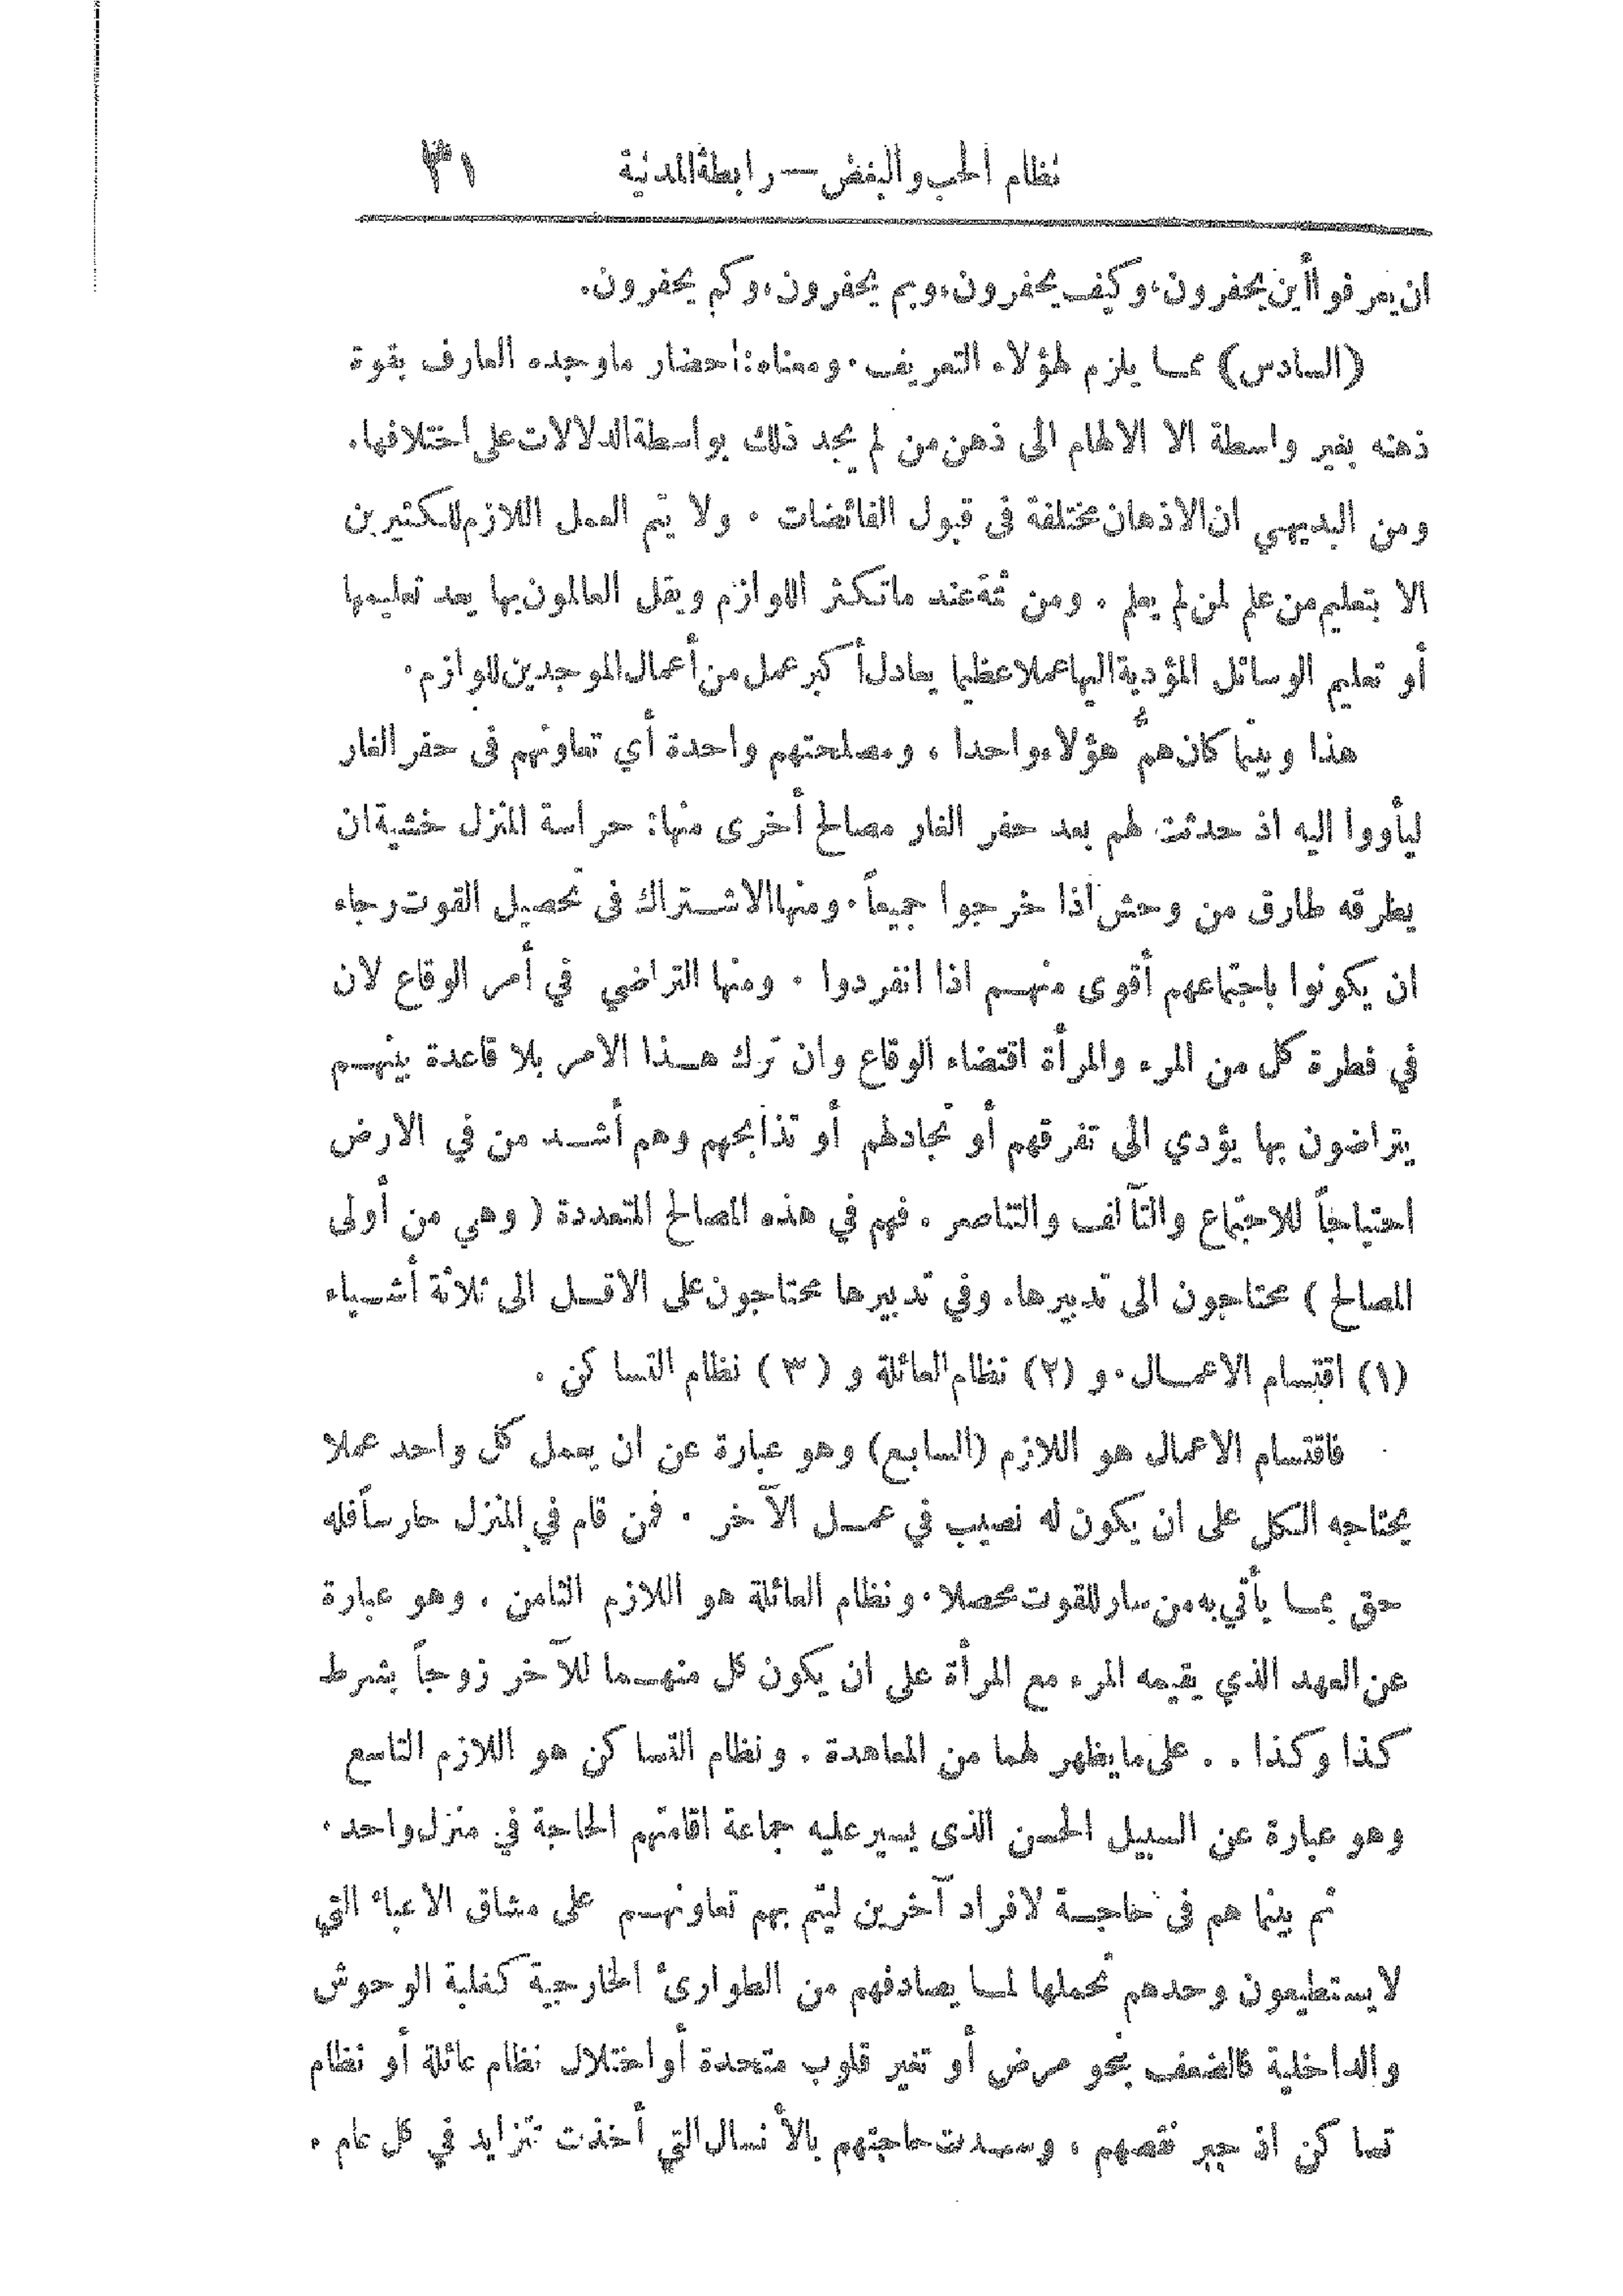 نظام الحب والبغض — رابطة المدنية ٣١
ان يعرفوا أين يحفرون، وكيف يحفرون، وبم يحفرون، وكم يحفرون.
(السادس) مما يلزم لهؤلاء التعريف. ومعناه: احضار ما وجده العارف بقوة
ذهنه بغير واسطة الا الالهام الى ذهن من لم يجد ذلك بواسطة الدلالات على اختلافها.
ومن البديهي ان الاذهان مختلفة في قبول الفائضات. ولا يتم العمل اللازم للكثيرين
الا بتعليم من علم لمن لم يعلم. ومن ثمة عند ما تكثر اللوازم ويقل العالمون بها يعد تعليمها
أو تعليم الوسائل المؤدية اليها عملا عظيما يعادل أكبر عمل من أعمال الموجدين للوازم.
هذا وبينما كان همُّ هؤلاء واحدا، ومصلحتهم واحدة أي تعاونهم في حفر الغار
ليأووا اليه اذ حدثت لهم بعد حفر الغار مصالح أخرى منها: حراسة المنزل خشية ان
يطرقه طارق من وحش اذا خرجوا جميعاً. ومنها الاشتراك في تحصيل القوت رجاء
ان يكونوا باجتماعهم أقوى منهم اذا انفردوا. ومنها التراضي في أمر الوقاع لان
في فطرة كل من المرء والمرأة اقتضاء الوقاع وان ترك هذا الامر بلا قاعدة بينهم
يتراضون بها يؤدي الى تفرقهم أو تجادلهم أو تذابحهم وهم أشد من في الارض
احتياجاً للاجتماع والتآلف والتناصر. فهم في هذه المصالح المتعددة (وهي من أولى
المصالح) محتاجون الى تدبيرها. وفي تدبيرها محتاجون على الاقل الى ثلاثة أشياء
(١) اقتسام الاعمال. و (٢) نظام العائلة و (٣) نظام التساكن.
فاقتسام الاعمال هو اللازم (السابع) وهو عبارة عن ان يعمل كل واحد عملا
يحتاجه الكل على ان يكون له نصيب في عمل الآخر. فمن قام في المنزل حارساً فله
حق بما يأتي به من سار للقوت محصلا. ونظام العائلة هو اللازم الثامن. وهو عبارة
عن العهد الذي يقيمه المرء مع المرأة على ان يكون كل منهما للآخر زوجاً بشرط
كذا وكذا.. على ما يظهر لهما من المعاهدة. ونظام التساكن هو اللازم التاسع
وهو عبارة عن السبيل الحسن الذي يسير عليه جماعة اقامتهم الحاجة في منزل واحد.
ثم بينما هم في حاجة لافراد آخرين ليتم بهم تعاونهم على مشاق الاعباء التي
لا يستطيعون وحدهم تحملها لما يصادفهم من الطوارئ الخارجية كغلبة الوحوش
والداخلية كالضعف بنحو مرض أو تغير قلوب متحدة أو اختلال نظام عائلة أو نظام
تساكن اذ جبر نقصهم، وسدت حاجتهم بالأنسال التي أخذت تتزايد في كل عام.